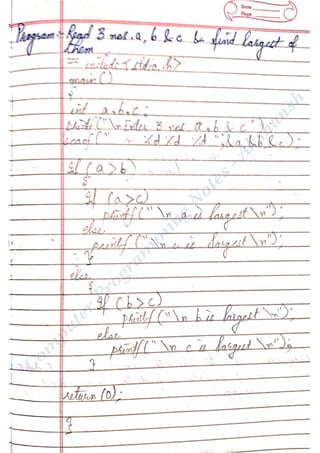 Date
Page
Program:- Read 3 nos. a, b & c & find largest of
them
= include <stdio.h>
main ()
{
int a,b,c;
printf("\n Enter 3 nos. a, b & c");
scanf(" %d %d %d ",&a,&b&c);
if (a>b)
{
if (a>c)
printf("\n a is largest \n");
else
printf("\n c is largest \n");
}
else
{
if (b>c)
printf("\n b is largest \n");
else
printf("\n c is largest \n");
}
return (0);
}
Computer Programming Notes -